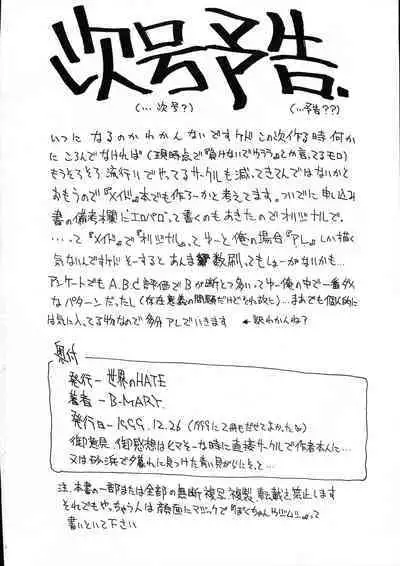 次号予告.
(… 次号?) (… 予告??)
いつに なるのかわかんないですケド この次作る時 何か
にころんでなければ (現時点で『負けないでサララ』とか言ってるモロ)
もうそろそろ 流行りでやってるサークルも減ってきてんではないかと
おもうので『メイド』本でも作ろーかと考えてます。ついでに申し込み
書の備考欄に『エロパロ』って書くのもあきたのでオリジナルで。
… って『メイド』で『オリジナル』ってゆーと俺の場合『アレ』しか描く
気ないんですケド そーすると あんま 数刷ってもしょーがないかも…
アンケートでもA.B.C評価でBが断トツ多いってゆー俺の中で一番外
なパターンだったし (存在意義の問題だけどそれ故に)… まあでも個人的に
は気に入ってる物なので多分アレでいきます ←訳わかんね?
奥付
発行ー世界のHATE
著者ーB-MART.
発行日ー1999.12.26 (1999にて1冊もだせてよかったな)
御意見、御感想はヒマそーな時に直接サークルで作者本人に…
又は砂浜で夕暮れに見つけた青い貝がらにそっと…
注.本書の一部または全部の無断複写、複製、転載を禁止します
それでもやっちゃう人は顔面にマジックで『ぼくちゃん
って
書いといて下さい